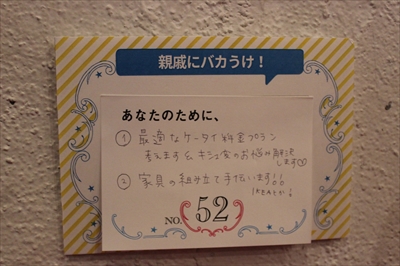 親戚にバカうけ！
あなたのために、
① 最適なケータイ料金プラン
考えます & キシュ変のお悩み解決
します♡
② 家具の組み立て手伝います!!
IKEAとか!
NO. 52